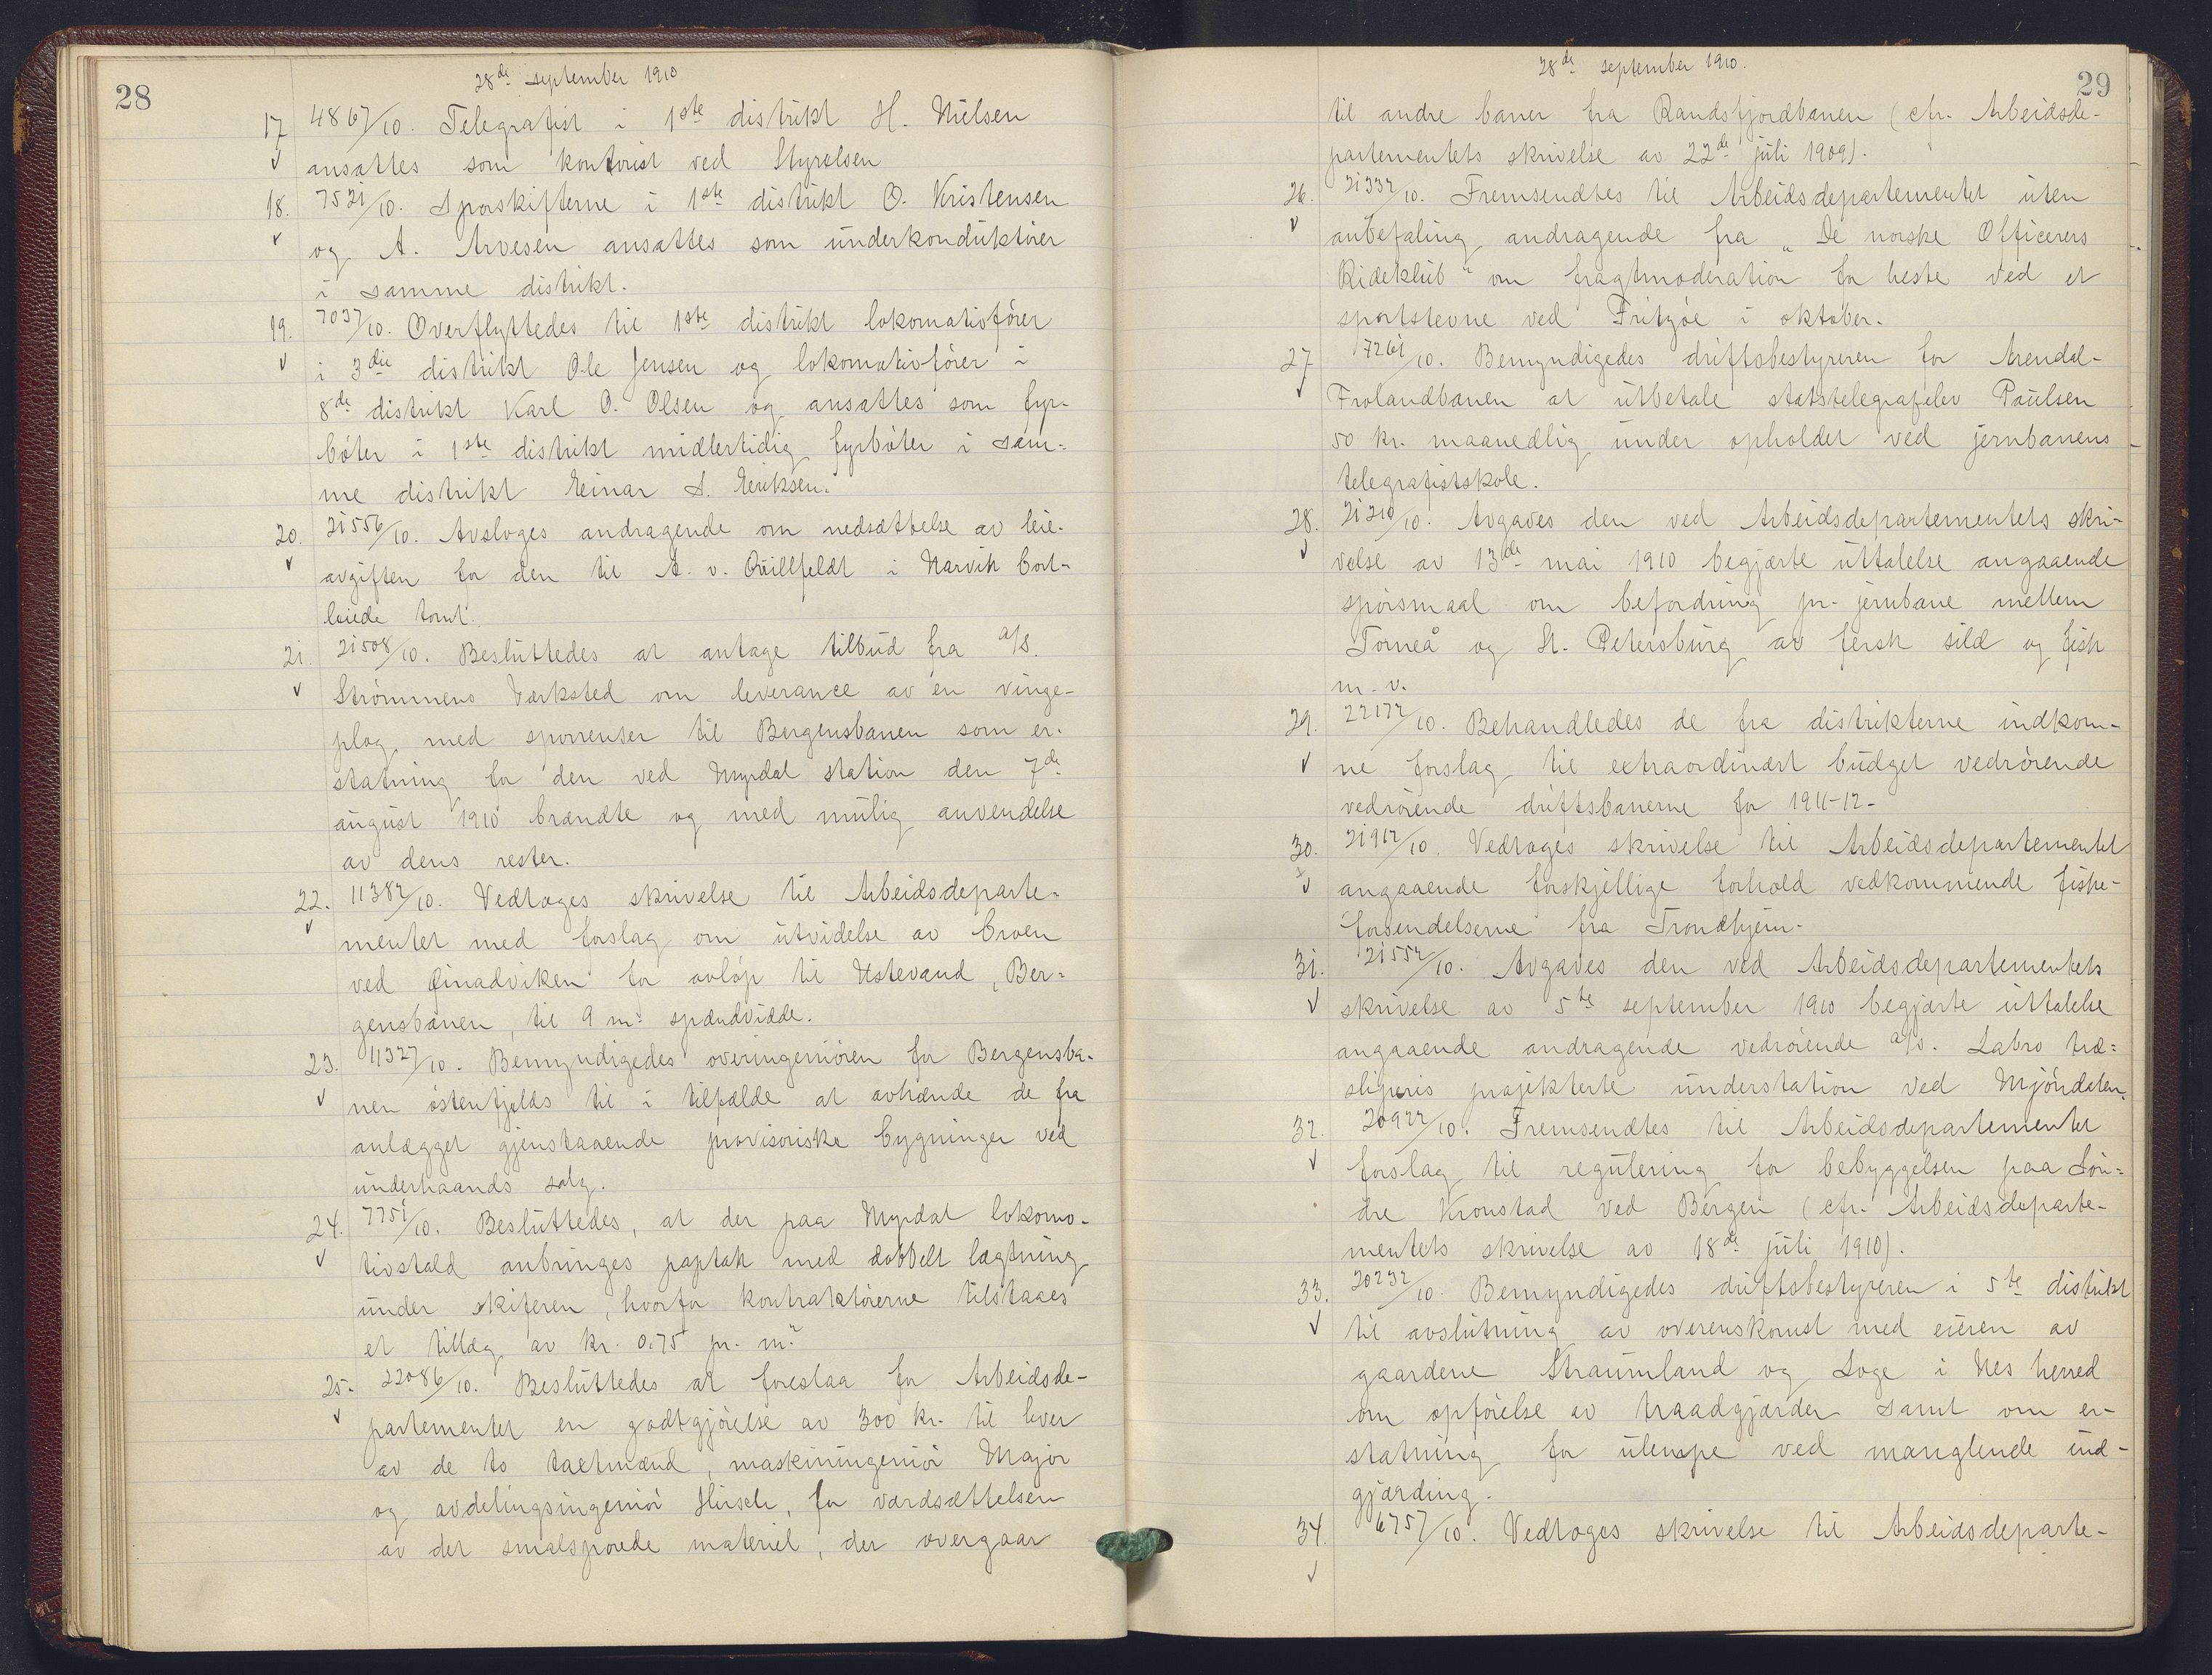 28
28de september 1910
17 4867/10. Telegrafist i 1ste distrikt H. Nielsen
ansattes som kontorist ved Styrelsen
18. 7521/10. Sporskifterne i 1ste distrikt O. Kristensen
og A. Arvesen ansattes som underkonduktører
i samme distrikt.
19. 7037/10. Overflyttedes til 1ste distrikt lokomotivfører
i 3die distrikt Ole Jensen og lokomotivfører i
8de distrikt Karl O. Olsen og ansattes som fyr-
bøter i 1ste distrikt midlertidig fyrbøter i sam-
me distrikt Einar A. Eriksen.
20. 21556/10. Avsloges andragende om nedsættelse av leie-
avgiften for den til A. v. Quillfeldt i Narvik bort-
leiede tomt.
21. 21508/10. Besluttedes at antage tilbud fra a/s.
Strømmens Værksted om leverance av en vinge-
plog med sporrenser til Bergensbanen som er-
statning for den ved Myrdal station den 7de
august 1910 brændte og med mulig anvendelse
av dens rester.
22. 11382/10. Vedtoges skrivelse til Arbeidsdeparte-
mentet med forslag om utvidelse av broen
ved Øinadviken for avløp til Ustevand, Ber-
gensbanen, til 9 m. spændvidde.
23. 11327/10. Bemyndigedes overingeniøren for Bergensba-
nen østenfjelds til i tilfælde at avhænde de fra
anlægget gjenstaaende provisoriske bygninger ved
underhaands salg.
24. 7751/10. Besluttedes, at der paa Myrdal lokomo-
tivstald anbringes paptak med dobbelt lægtning
under skiferen, hvorfor kontraktørerne tilstaaes
et tillæg av kr. 0.75 pr. m2
25. 22086/10. Besluttedes at foreslaa for Arbeidsde-
partementet en godtgjørelse av 300 kr. til hver
av de to taxtmænd, maskiningeniør Major
og avdelingsingeniør Hirsch, for værdsættelsen
av det smalsporede materiel, der overgaar
29
28de september 1910.
til andre baner fra Randsfjordbanen (cfr. Arbeidsde-
partementets skrivelse av 22de juli 1909).
26. 21332/10. Fremsendtes til Arbeidsdepartementet uten
anbefaling andragende fra „De norske Officerers
Rideklub" om fragtmoderation for heste ved et
sportstevne ved Fritzøe i oktober.
27 7261/10. Bemyndigedes driftsbestyreren for Arendal-
Frolandbanen at utbetale statstelegrafelev Paulsen
50 kr. maanedlig under opholdet ved jernbanens
telegrafistskole.
28. 21210/10. Avgaves den ved Arbeidsdepartementets skri-
velse av 13de mai 1910 begjærte uttalelse angaaende
spørsmaal om befordring pr. jernbane mellem
Torneå og St. Petersburg av fersk sild og fisk
m. v.
29. 22172/10. Behandledes de fra distrikterne indkom-
ne forslag til extraordinært budget vedrørende
vedrørende driftsbanerne for 1911-12.
30. 21912/10. Vedtoges skrivelse til Arbeidsdepartementet
angaaende forskjellige forhold vedkommende fiske-
forsendelserne fra Trondhjem.
31. 21552/10. Avgaves den ved Arbeidsdepartementets
skrivelse av 5te september 1910 begjærte uttalelse
angaaende andragende vedrørende a/s. Labro træ-
sliperis projekterte understation ved Mjøndalen.
32. 20922/10. Fremsendtes til Arbeidsdepartementet
forslag til regulering for bebyggelsen paa Søn-
dre Kronstad ved Bergen (cfr. Arbeidsdeparte-
mentets skrivelse av 18de juli 1910).
33. 20232/10. Bemyndigedes driftsbestyreren i 5te distrikt
til avslutning av overenskomst med eieren av
gaardene Straumland og Loge i Nes herred
om opførelse av traadgjærder samt om er-
statning for ulempe ved manglende ind-
gjærding.
34. 6757/10. Vedtoges skrivelse til Arbeidsdeparte-